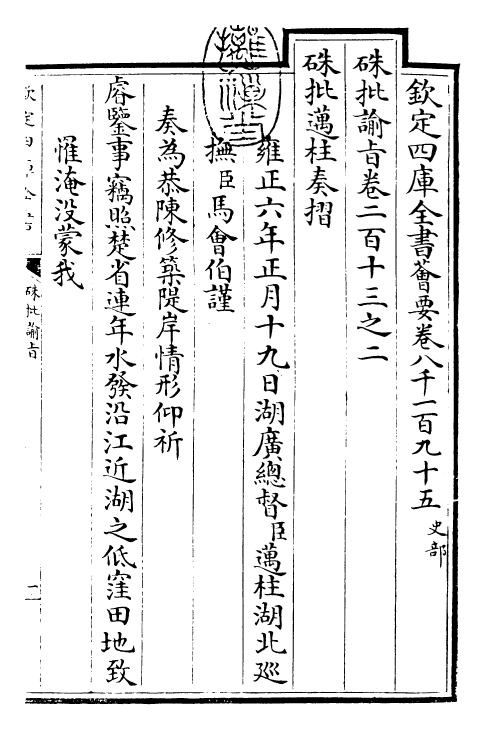 欽定四庫全書薈要卷八千一百九十五 史部
硃批諭旨卷二百十三之二
硃批邁柱奏摺
雍正六年正月十九日湖廣總督臣邁柱湖北廵
撫臣馬會伯謹
奏為恭陳修築隄岸情形仰祈
睿鑒事竊照楚省連年水發沿江近湖之低窪田地致
罹淹没蒙我
硃批諭旨